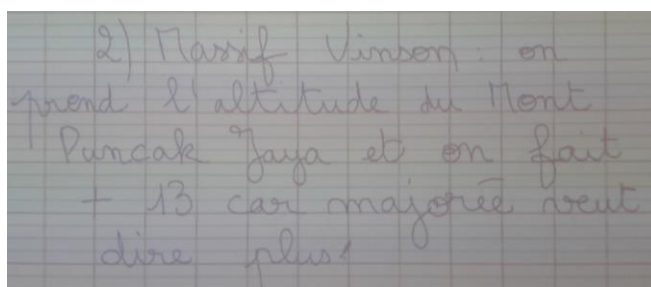 2) Massif Vinson : on
prend l'altitude du Mont
Puncak Jaya et on fait
+ 13 car majorée veut
dire plus.